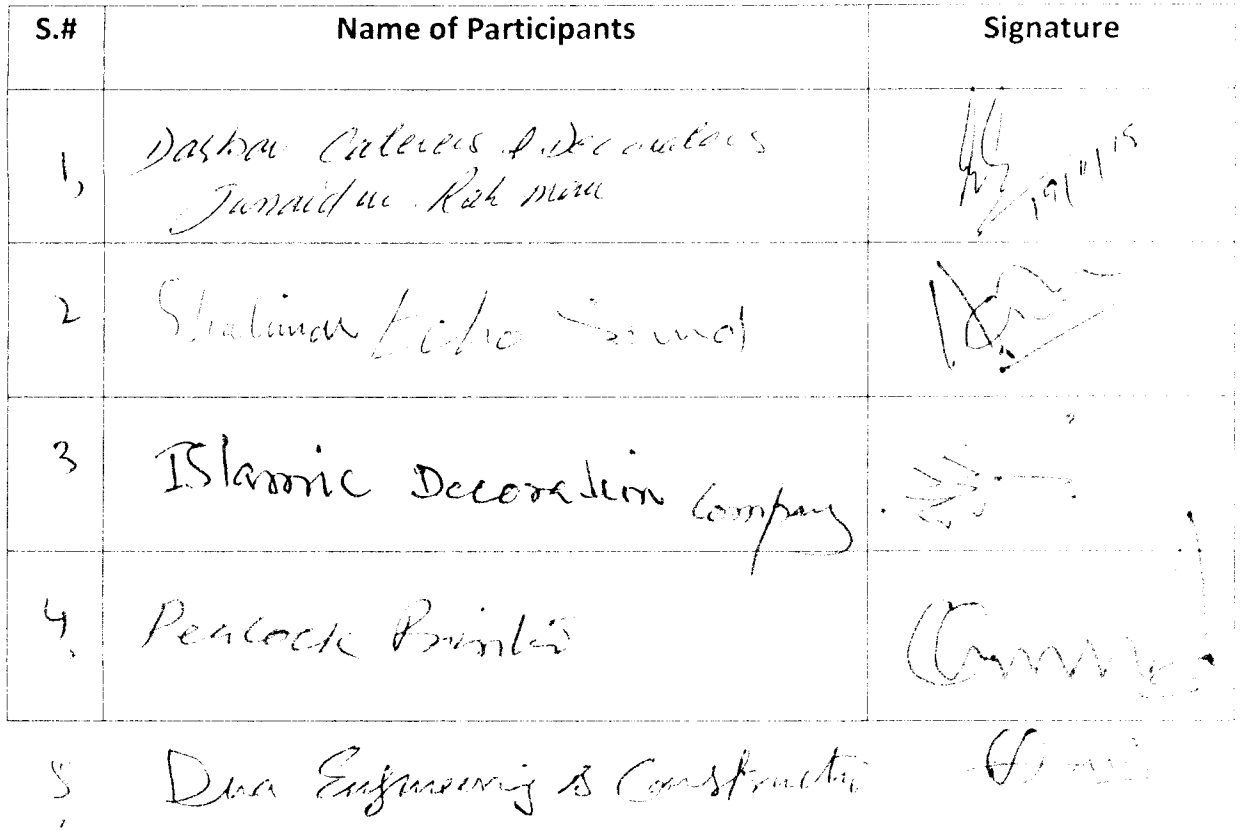 S.# Name of Participants Signature
1, Darbar Caterers & Decorators
Junaid ur Rahman 19/11/15
2 Shalimar Echo Sound
3 Islamic Decoration Company.
4, Peacock Printers
5, Dua Engineering & Constructi